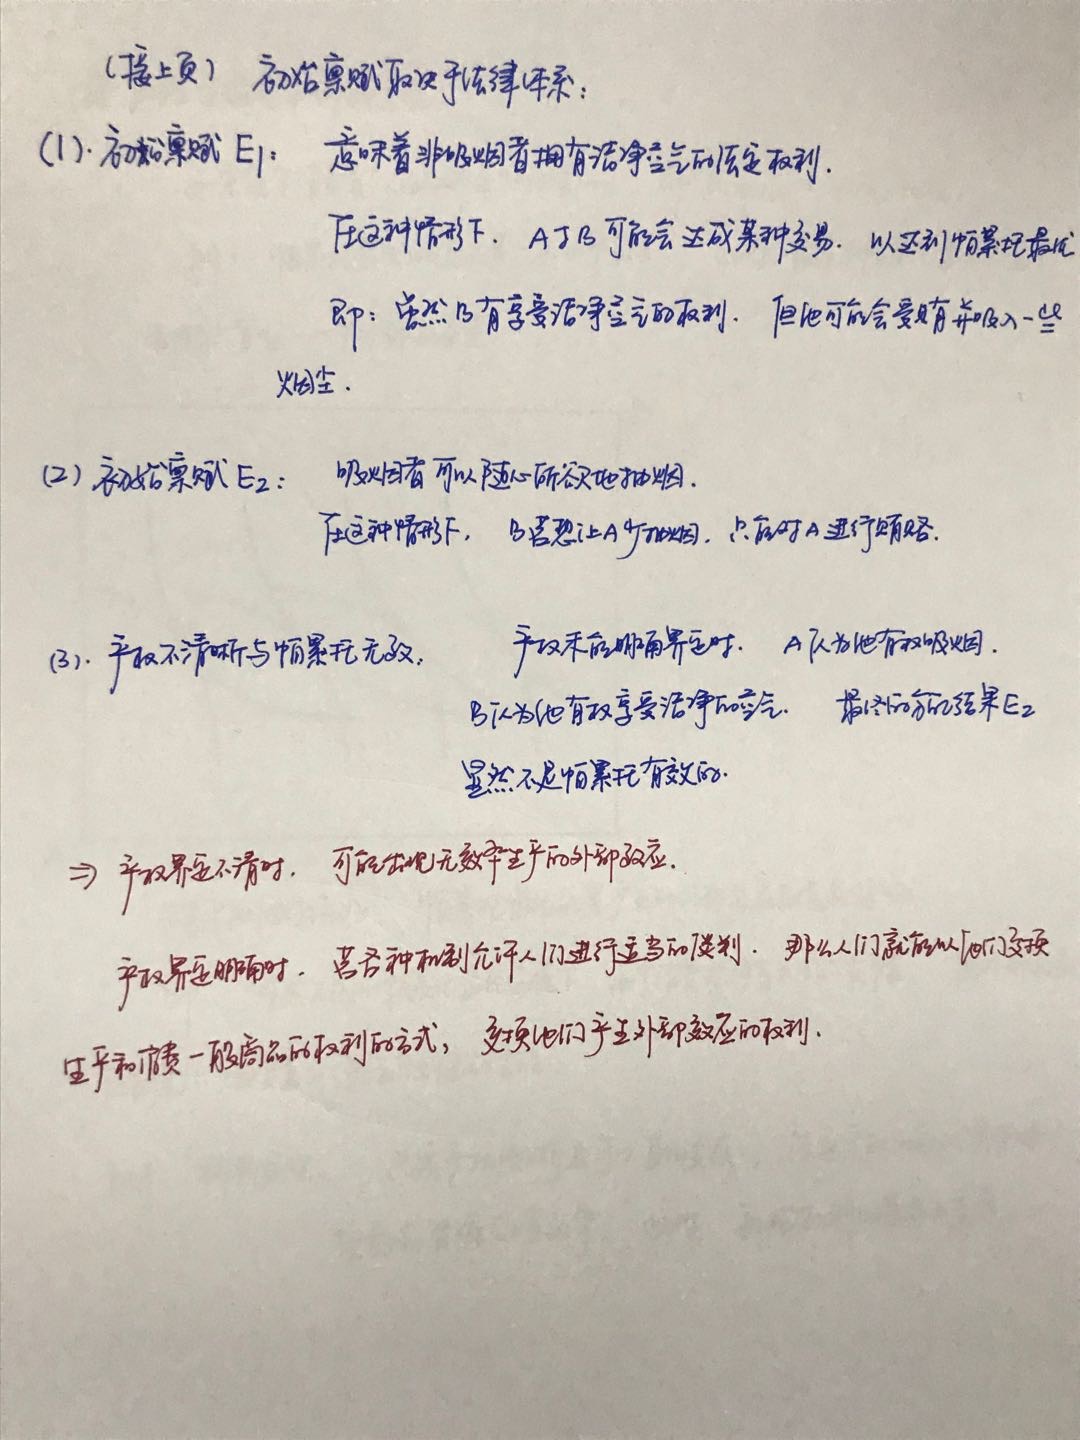 (接上页) 初始禀赋取决于法律体系:
(1). 初始禀赋 E1: 意味着非吸烟者拥有洁净空气的法定权利.
在这种情形下. A与B可能会达成某种交易. 以达到帕累托最优
即: 虽然B有享受洁净空气的权利. 但他可能会受贿并吸入一些
烟尘.
(2) 初始禀赋 E2: 吸烟者可以随心所欲地抽烟.
在这种情形下, B若想让A少抽烟. 只能对A进行贿赂.
(3). 产权不清晰与帕累托无效: 产权未能明确界定时. A认为他有权吸烟.
B认为他有权享受洁净的空气. 最终的可能结果E2
显然不是帕累托有效的.
⇒ 产权界定不清时. 可能出现无效率生产的外部效应.
产权界定明确时. 若各种机制允许人们进行适当的谈判. 那么人们就能以他们交换
生产和消费一般商品的权利的方式, 交换他们产生外部效应的权利.